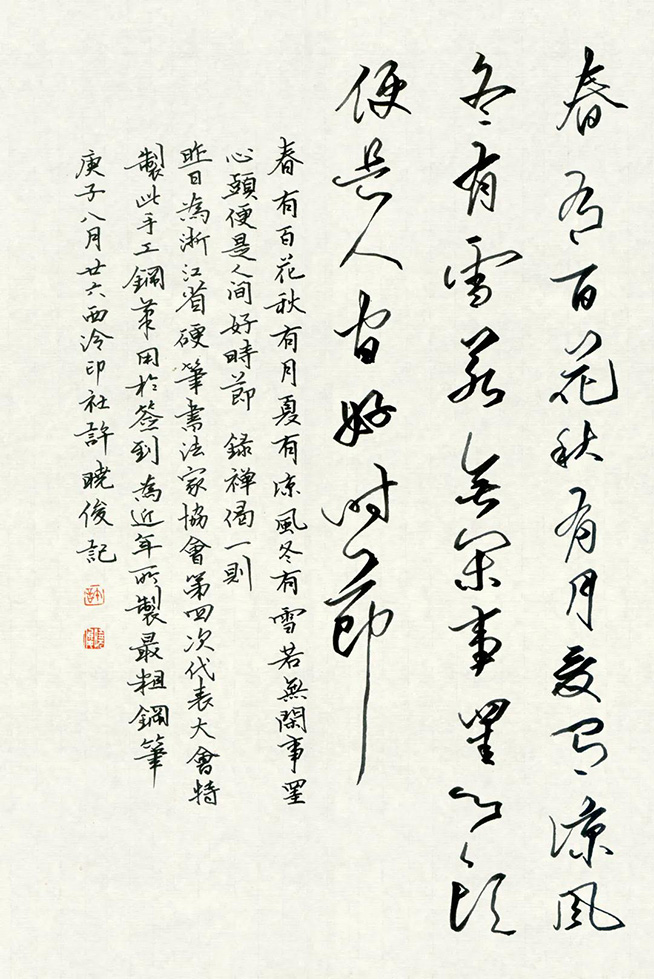 春有百花秋有月夏有凉風
冬有雪若無閑事罣心頭
便是人间好时節
春有百花秋有月夏有凉風冬有雪若無閑事罣
心頭便是人间好時節 録禅偈一則
昨日為浙江省硬筆書法家協會第四次代表大會特
製此手工鋼筆用於簽到為近年所製最粗鋼筆
庚子八月廿六西泠印社許曉俊記